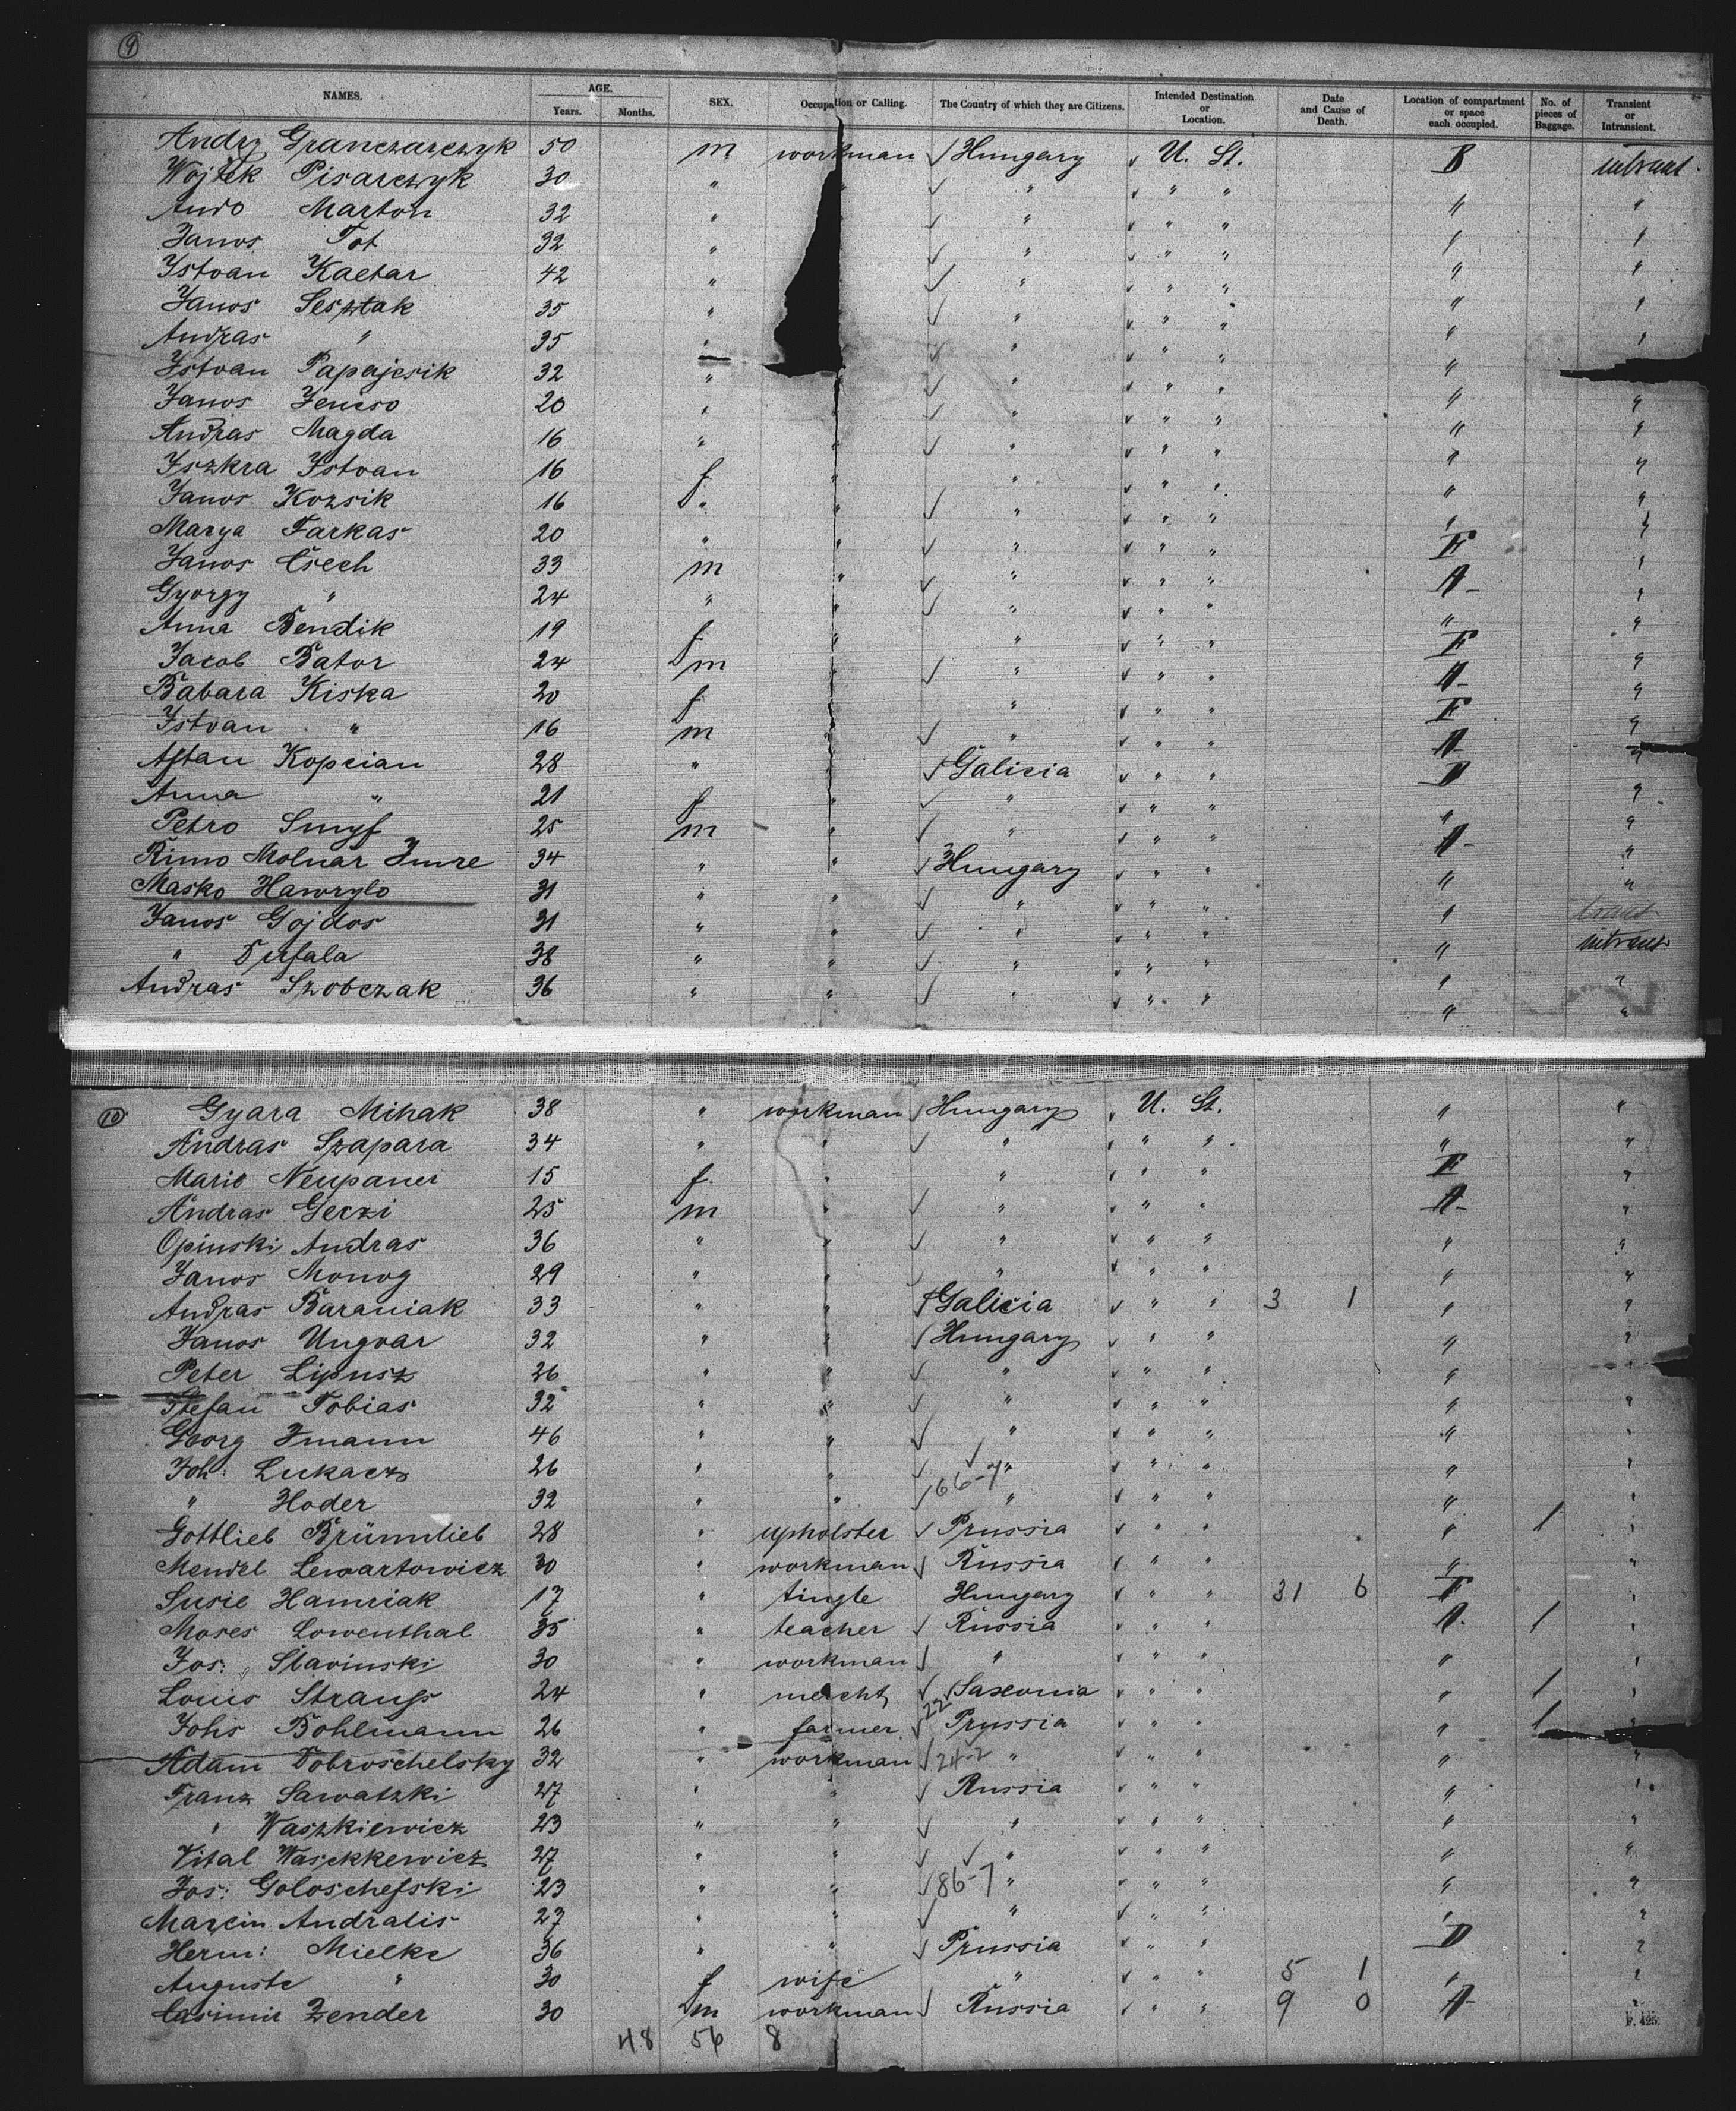 9
NAMES. AGE. Years. Months. SEX. Occupation or Calling. The Country of which they are Citizens. Intended Destination or Location. Date and Cause of Death. Location of compartment or space each occupied. No. of pieces of Baggage. Transient or Intransient.
Andrz Granczarczyk 50 m workman ✓ Hungary ✓ U. St. B intrant
Wojtek Pisarczyk 30 " " ✓ " ✓ " " " "
Ando Marton 32 " ✓ " ✓ " " " "
Janos Tot 32 " ✓ " ✓ " " " "
Istvan Kaetar 42 " ✓ " ✓ " " " "
Janos Sesztak 35 " ✓ " ✓ " " " "
Andras " 35 " ✓ " ✓ " " "
Istvan Papajcsik 32 " " ✓ " ✓ " " " "
Janos Jencso 20 " " ✓ " ✓ " " " "
Andras Magda 16 " " ✓ " ✓ " " " "
Iszkra Istvan 16 f " " ✓ " " " "
Janos Kozsik 16 " " ✓ " ✓ " " " "
Marya Farkas 20 " " ✓ " ✓ " " F "
Janos Csech 33 m " ✓ " ✓ " " A "
Gyorgy " 24 " " ✓ " ✓ " " " "
Anna Bendik 19 f " " ✓ " " F "
Jacob Bator 24 m " ✓ " ✓ " " A "
Babara Kiska 20 f " " ✓ " " F "
Istvan " 16 m " ✓ " ✓ " " A "
Aftan Kopcian 28 " " ✓ Galicia ✓ " " D "
Anna " 21 f " ✓ " ✓ " " " "
Petro Smyf 25 m " ✓ " ✓ " " A "
Rimo Molnar Imre 34 " " ✓ Hungary ✓ " " " "
Masko Hawrylo 31 " " ✓ " ✓ " " " trant
Janos Gojdos 31 " " ✓ " ✓ " " " intrant
" Dufala 38 " " ✓ " ✓ " " " "
Andras Szobczak 36 " " ✓ " ✓ " " " "
10
Gyara Mihak 38 " workman ✓ Hungary ✓ U. St. " "
Andras Szapara 34 " " ✓ " ✓ " " " "
Marie Neupauer 15 f. " " ✓ " " F "
Andras Geczi 25 m " ✓ " ✓ " " A "
Opinski Andras 36 " " ✓ " ✓ " " " "
Janos Monog 29 " " ✓ " ✓ " " " "
Andras Baraniak 33 " " ✓ Galicia ✓ " " 3 1 " "
Janos Ungvar 32 " " ✓ Hungary ✓ " " " "
Peter Lipusz 26 " " ✓ " ✓ " " "
Stefan Tobias 32 " " ✓ " ✓ " " " "
Georg Imann 46 " " ✓ " ✓ " " " "
Joh: Lukacz 26 " " ✓ ✓ " ✓ " " " "
" Hoder 32 " " ✓ 66-7 " ✓ " " " "
Gottlieb Brünnlieb 28 " upholster ✓ Prussia ✓ " " " 1 "
Mendel Lewartowicz 30 " workman ✓ Russia ✓ " " " "
Susie Hamriak 17 " single Hungary ✓ " " 31 6 F "
Moses Lowenthal 35 " teacher ✓ Russia ✓ " " A. 1 "
Jos: Slavinski 30 " workman ✓ " ✓ " " " "
Louis Strauss 24 " mercht, ✓ Saxonia ✓ " " " 1 "
Johs Bohlmann 26 " farmer ✓ 22 Prussia ✓ " " " 1 "
Adam Dobroschelsky 32 " workman ✓ 24-2 " ✓ " " " "
Franz Sawatzki 27 " " ✓ Russia ✓ " " " "
" Waszkiewicz 23 " " ✓ " ✓ " " " "
Vital Wasckkewicz 27 " " ✓ ✓ " ✓ " " " "
Jos: Goloschefski 23 " " ✓ 86-7 " ✓ " " " "
Marcin Andralis 27 " " ✓ " ✓ " " " "
Herm: Mielke 36 " " ✓ Prussia ✓ " " D "
Auguste " 30 f wife " ✓ " " 5 1 " "
Casimir Zender 30 m workman ✓ Russia ✓ " " 9 0 A "
48 56 8
F. 425.